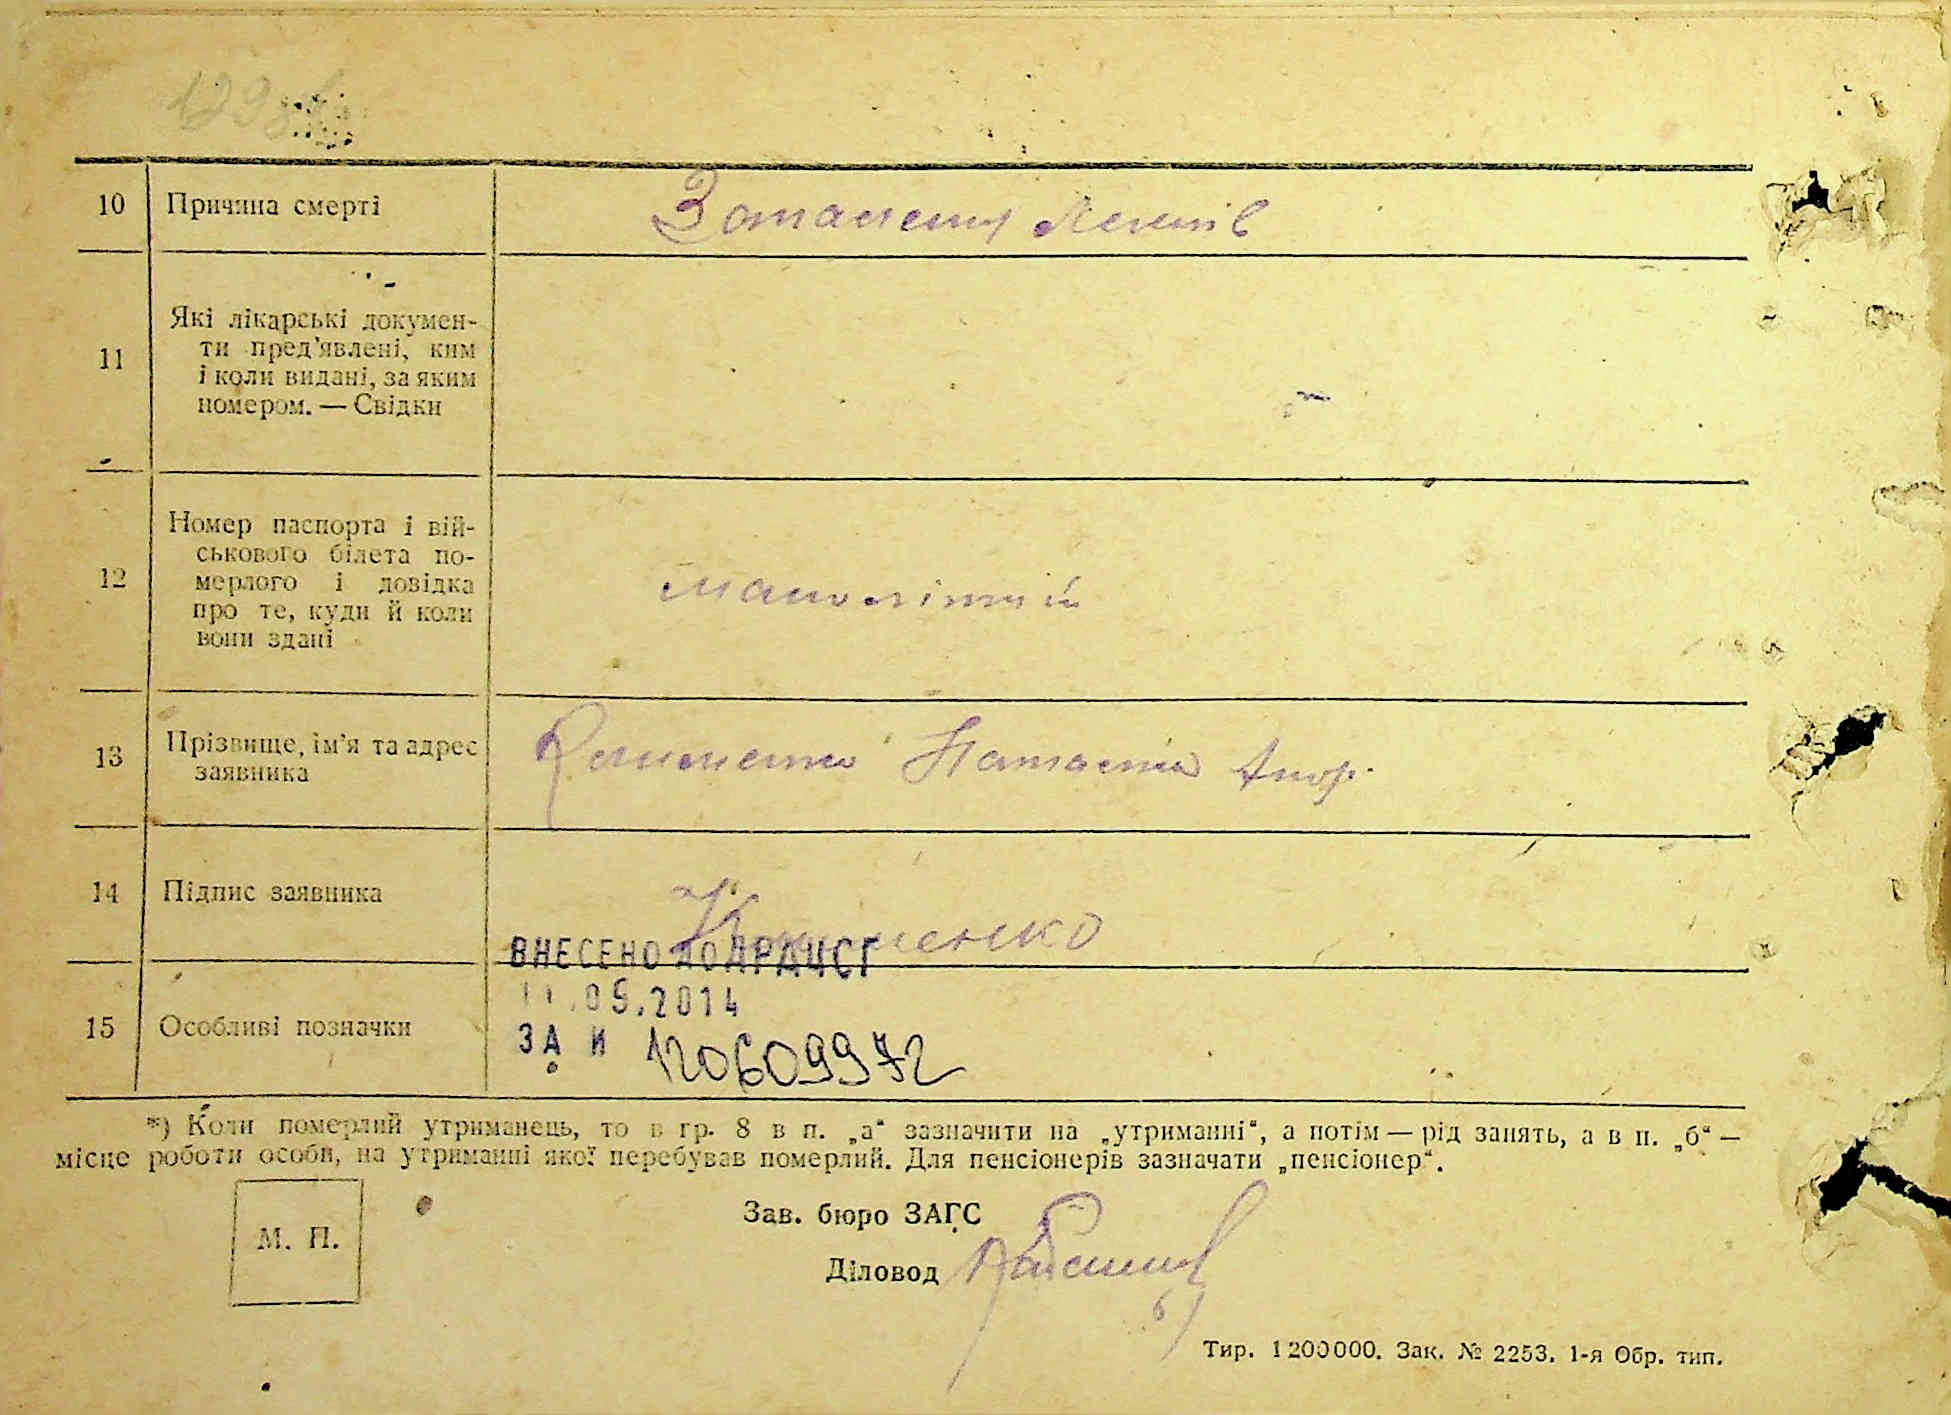 10 Причина смерті Запалення легенів
11 Які лікарські докумен-
ти пред'явлені, ким
і коли видані, за яким
номером. — Свідки
12 Номер паспорта і вій-
ськового білета по-
мерлого і довідка
про те, куди й коли
вони здані
малолітній
13 Прізвище, ім'я та адрес
заявника
14 Підпис заявника
ВНЕСЕНО ДО ДРАЦСГ
11.09.2014
15 Особливі позначки
ЗА И 120609972
*) Коли померлий утриманець, то в гр. 8 в п. „а“ зазначити на „утриманні“, а потім — рід занять, а в п. „б“ —
місце роботи особи, на утриманні якої перебував померлий. Для пенсіонерів зазначати „пенсіонер“.
Зав. бюро ЗАГС
М. П.
Діловод
Тир. 1200000. Зак. № 2253. 1-я Обр. тип.